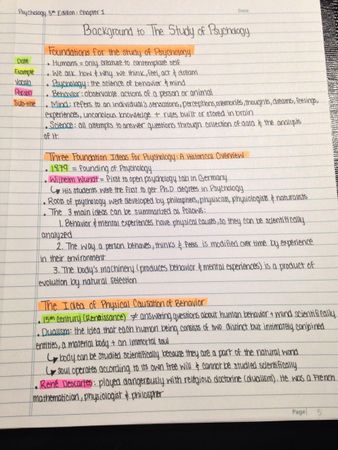 Psychology 5th Edition: Chapter 1
Date:
Background to The Study of Psychology
Foundations for the study of Psychology
Date
Example
Vocab
People
Sub-title
• Humans = only creature to contemplate self
• We ask how & why we think, feel, act & dream
• Psychology: the science of behavior & mind
• Behavior: observable actions of a person or animal
• Mind: refers to an individual's sensations, perceptions, memories, thoughts, dreams, feelings,
experiences, unconscious knowledge + rules built or stored in brain
• Science: all attempts to answer questions through collection of data & the analysis
of it.
Three Foundation Ideas for Psychology: A Historical Overview
• 1879 = founding of Psychology
• Wilhelm Wundt = First to open psychology lab in Germany
↳ His students were the first to get Ph.D degrees in Psychology
• Roots of psychology were developed by philosphers, physicists, physiologists & naturalists
• The 3 main ideas can be summarized as follows:
1. Behavior & mental experiences have physical causes, so they can be scientifically
analyzed
2. The way a person behaves, thinks & feels is modified over time by experience
in their environment
3. The body's machinery (produces behavior & mental experiences) is a product of
evolution by natural selection
The Idea of Physical Causation of Behavior
• 15th century (Renaissance) ≠ answering questions about human behavior + mind scientifically
• Dualism: the idea that each human being consists of two distinct but intimately conjoined
entities, a material body + an immortal soul
↳ body can be studied scientifically because they are a part of the natural world
↳ soul operates according to its own free will & cannot be studied scientifically
• René Descartes: played dangerously with religious doctrine (dualism). He was a French
mathematician, physiologist & philospher
Page 5